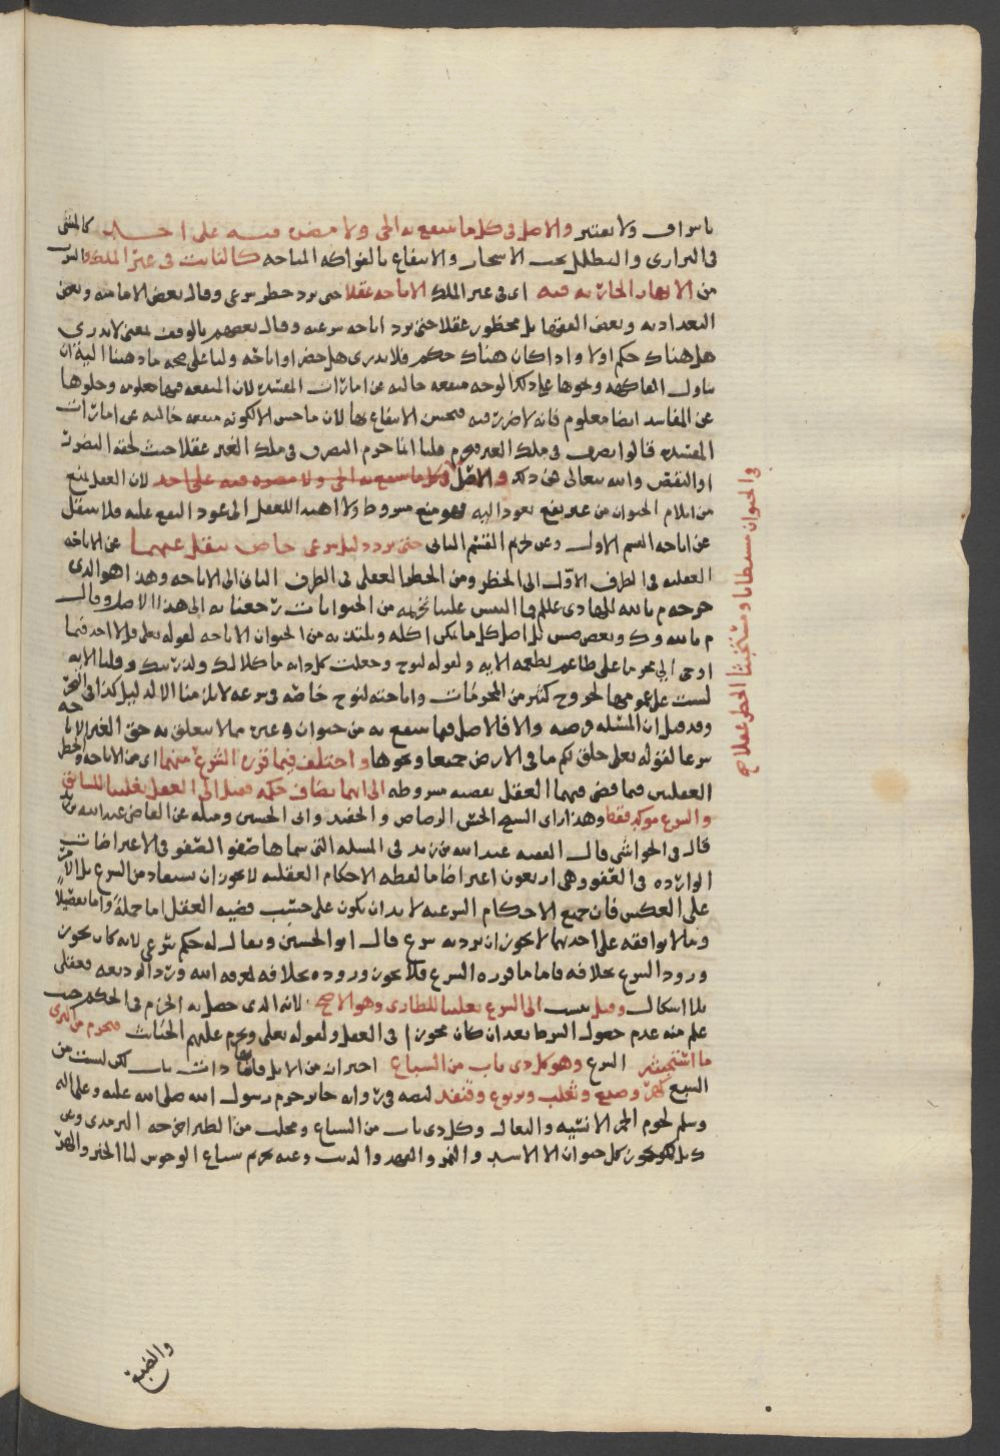 باسراف ولا يعتبر والاصل في كل ما ينتفع به الحي ولا مضرة فيه على احد كالمشي
في البراري والتظلل تحت الاشجار والانتفاع بالفواكه المباحة كالنابت في غير الملك والشرب
من الانهار الجارية فيه اي في غير الملك الاباحة عقلا حتى يرد حظر شرعي وقال بعض الامامية وبعض
البغدادية وبعض الفقها بل محظور عقلا حتى يرد اباحة شرعية وقال بعضهم بالوقف بمعنى لا ندري
هل هناك حكم اولا واذا كان هناك حكم فلا ندري هل حضر او اباحة ولنا على صحة ما ذهبنا اليه ان
تناول الفاكهة ونحوها على ذلك الوجه منفعة خالية عن امارات المفسدة لان المنفعة فيها معلومة وخلوها
عن المفاسد ايضا معلوم فانه لا ضرر فيه فيحسن الانتفاع بها لان ما حسن الا لكونه منفعة خالية عن امارات
المفسدة قالوا تصرف في ملك الغير فيحرم قلنا انما حرم التصرف في ملك الغير عقلا حيث لحقه التضرر
او النقص والله يتعالى عن ذلك والاصل في كل ما ينتفع به الحي ولا مضرة فيه على احد لان العقل يمنع
من ايلام الحيوان من غير نفع يعود اليه فهو منع مشروط ولا اهتدا للعقل الى عود النفع عليه فلا ينتقل
عن اباحة القسم الاول وعن تحريم القسم الثاني حتى يرد دليل شرعي خاص ينقل عنهما عن الاباحة
العقلية في الطرف الاول الى الحظر ومن الحظر العقلي في الطرف الثاني الى الاباحة وهذا هو الذي
خرجه م بالله للهادي عللم فما التبس علينا تحريمه من الحيوانات رجعنا به الى هذا الاصل وقال
م بالله وك وبعض صش بل اصل كل ما يمكن اكله ويلتذ به من الحيوان الاباحة لقوله تعلى قل لا اجد فيما
اوحي الي محرما على طاعم يطعمه الاية ولقوله لنوح وجعلت كل دابة ماكلا لك ولذريتك قلنا الاية
ليست على عمومها لخروج كثير من المحرمات واباحته لنوح خاصة في شرعه لا يلزمنا الا لدليل كذا في البحر
وقد قيل ان المسئلة فرضية والا فلا اصل فيما ينتفع به من حيوان وغيره مما لا يتعلق به حق الغير الاباحة
شرعا لقوله تعلى خلق لكم ما في الارض جميعا ونحوها واختلف فيما قرره الشرع منهما اي من الاباحة والحظر
العقليين فيما قضى فيهما العقل بقضية مشروطة الى ايهما يضاف حكمه فقيل الى العقل تغليبا للسابق
والشرع موكد فقط وهذا راي الشيخ الحسن الرصاص والحفيد وابي الحسين ومثله عن القاضي عبد الله بن زيد
قال في الحواشي قال الفقيه عبد الله بن زيد في المسئلة التي سماها صفو الصفو في الاعتراضات
الواردة في الصفو وهي اربعون اعتراضا ما لفظه الاحكام العقلية لا يجوز ان تستفاد من الشرع بل الامر
على العكس فان جميع الاحكام الشرعية لا بد ان تكون على حسب قضية العقل اما جملة واما تفصيلا
وما لا يوافقه على احديهما لا يجوز ان يرد به شرع قال ابو الحسين ويقال له حكم شرعي لانه كان يجوز
ورود الشرع بخلافه فاما ما قرره الشرع فلا يجوز وروده بخلافه لمعرفة الله ورد الوديعة فعقلي
بلا اشكال وقيل بل ينسب الى الشرع تغليبا للطاري وهو الاصح لانه الذي حصل به الجزم في الحكم حيث
علم منه عدم حصول الشرط بعد ان كان مجوزا في العقل ولقوله تعلى ويحرم عليهم الخبائث فيحرم من البري
ما استخبثه الشرع وهو كل ذي ناب من السباع احتراز من الابل فانها ذات ناب لكن ليست من
السبع كهر وضبع وثعلب ويربوع وقنفذ لنصه في رواية جابر حرم رسول الله صلى الله عليه وعلى اله
وسلم لحوم الحمر الانسية والبغال وكل ذي ناب من السباع ومخلب من الطير اخرجه الترمذي وعن
ك بل يجوز كل حيوان الا الاسد والنمر والفهد والذئب وعنه تحريم سباع الوحوش لنا الخبر والهر
في الحيوان مستطابا ومستخبثا الحظر عقلا صح
والضبة